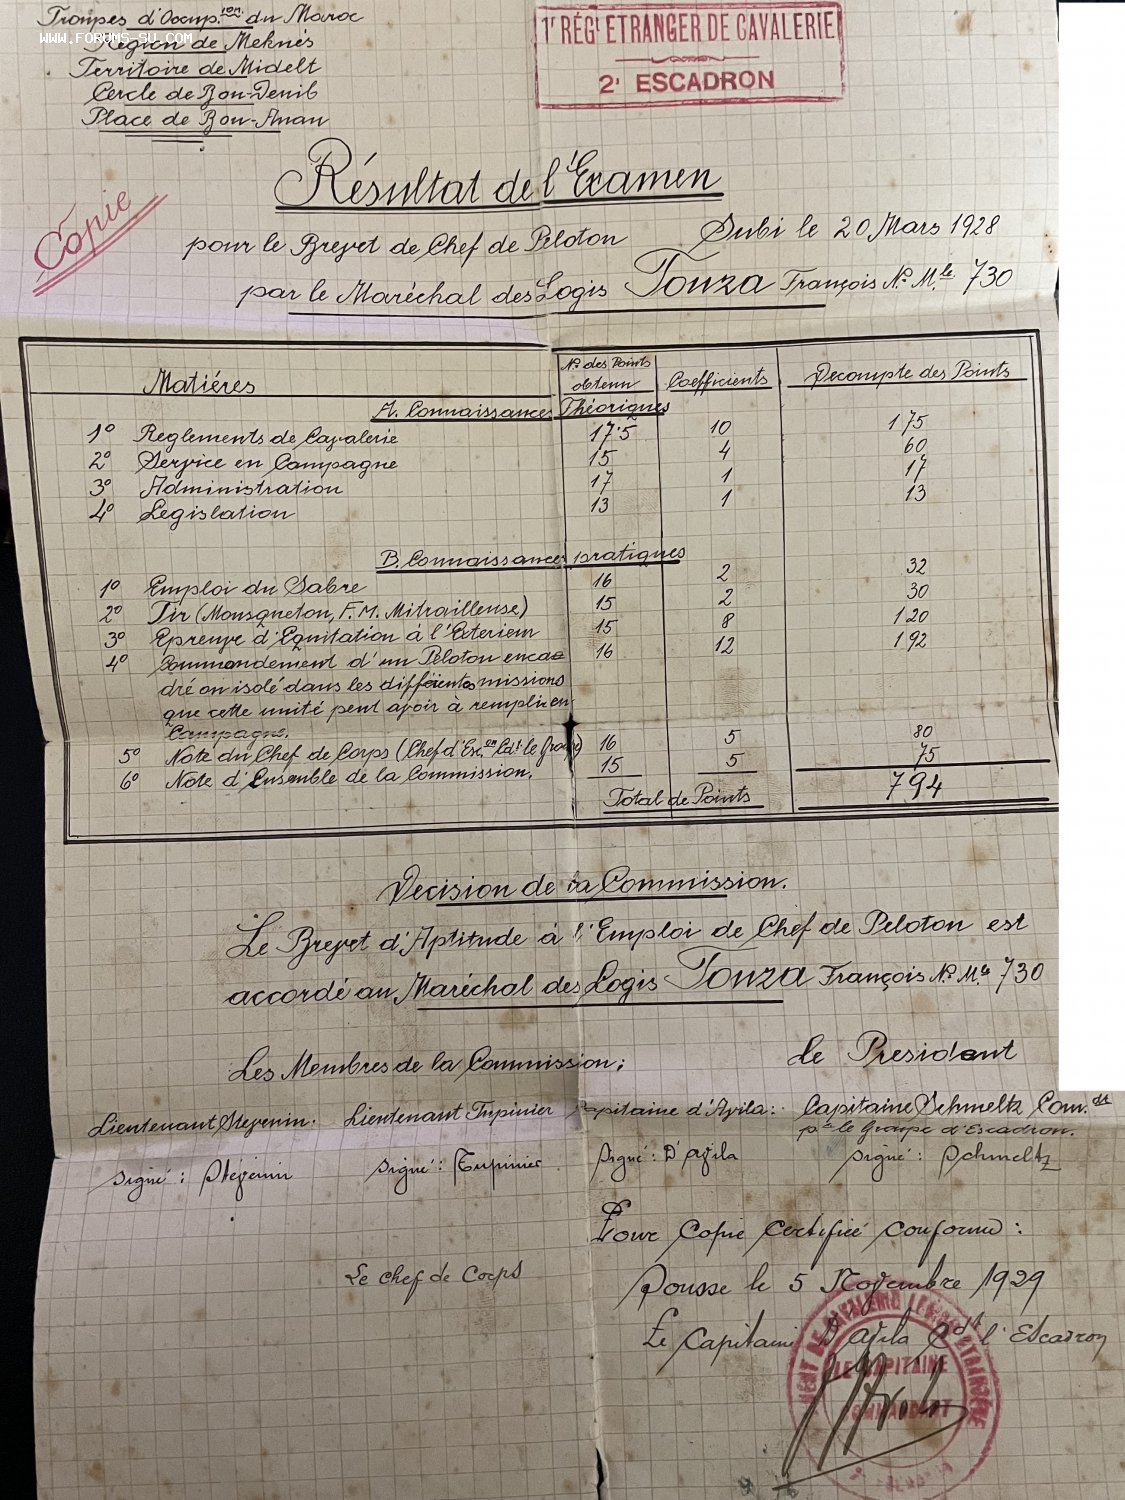 Troupes d'Occup.ion du Maroc
www.forums-su.com
Région de Meknés
Territoire de Midelt
Cercle de Bou-Denib
Place de Bou-Anan
1r RÉGt ETRANGER DE CAVALERIE
2e ESCADRON
Copie
Résultat de l'Examen
pour le Brevet de Chef de Peloton Subi le 20 Mars 1928
par le Maréchal des Logis Touza François No. Mle 730
Matiéres No. des Points obtenu Coefficients Decompte des Points
A. Connaissances Théoriques
1o Reglements de Cavalerie 17.5 10 175
2o Service en Campagne 15 4 60
3o Administration 17 1 17
4o Legislation 13 1 13
B. Connaissances pratiques
1o Emploi du Sabre 16 2 32
2o Tir (Mousqueton, F.M. Mitrailleuse) 15 2 30
3o Epreuve d'Equitation à l'Exterieur 15 8 120
4o Commandement d'un Peloton enca- 16 12 192
dré ou isolé dans les différentes missions
que cette unité peut avoir à remplir en
Campagne.
5o Note du Chef de Corps (Chef d'Esc.on Cdt le Groupe) 16 5 80
6o Note d'Ensemble de la Commission. 15 5 75
Total de Points 794
Decision de la Commission.
Le Brevet d'Aptitude à l'Emploi de Chef de Peloton est
accordé au Maréchal des Logis Touza François No. Mle 730
Les Membres de la Commission: Le President
Lieutenant Stevenin. Lieutenant Tupinier Capitaine d'Avila: Capitaine Schmeltz Com.dt
pt le Groupe d'Escadron.
signé: Stévenin signé: Tupinier signé: D'Avila signé: Schmeltz
Pour Copie certifiée conforme:
Le Chef de Corps
Sousse le 5 Novembre 1929
Le Capitaine D'Avila Cdt l'Escadron
LE CAPITAINE
COMMANDANT